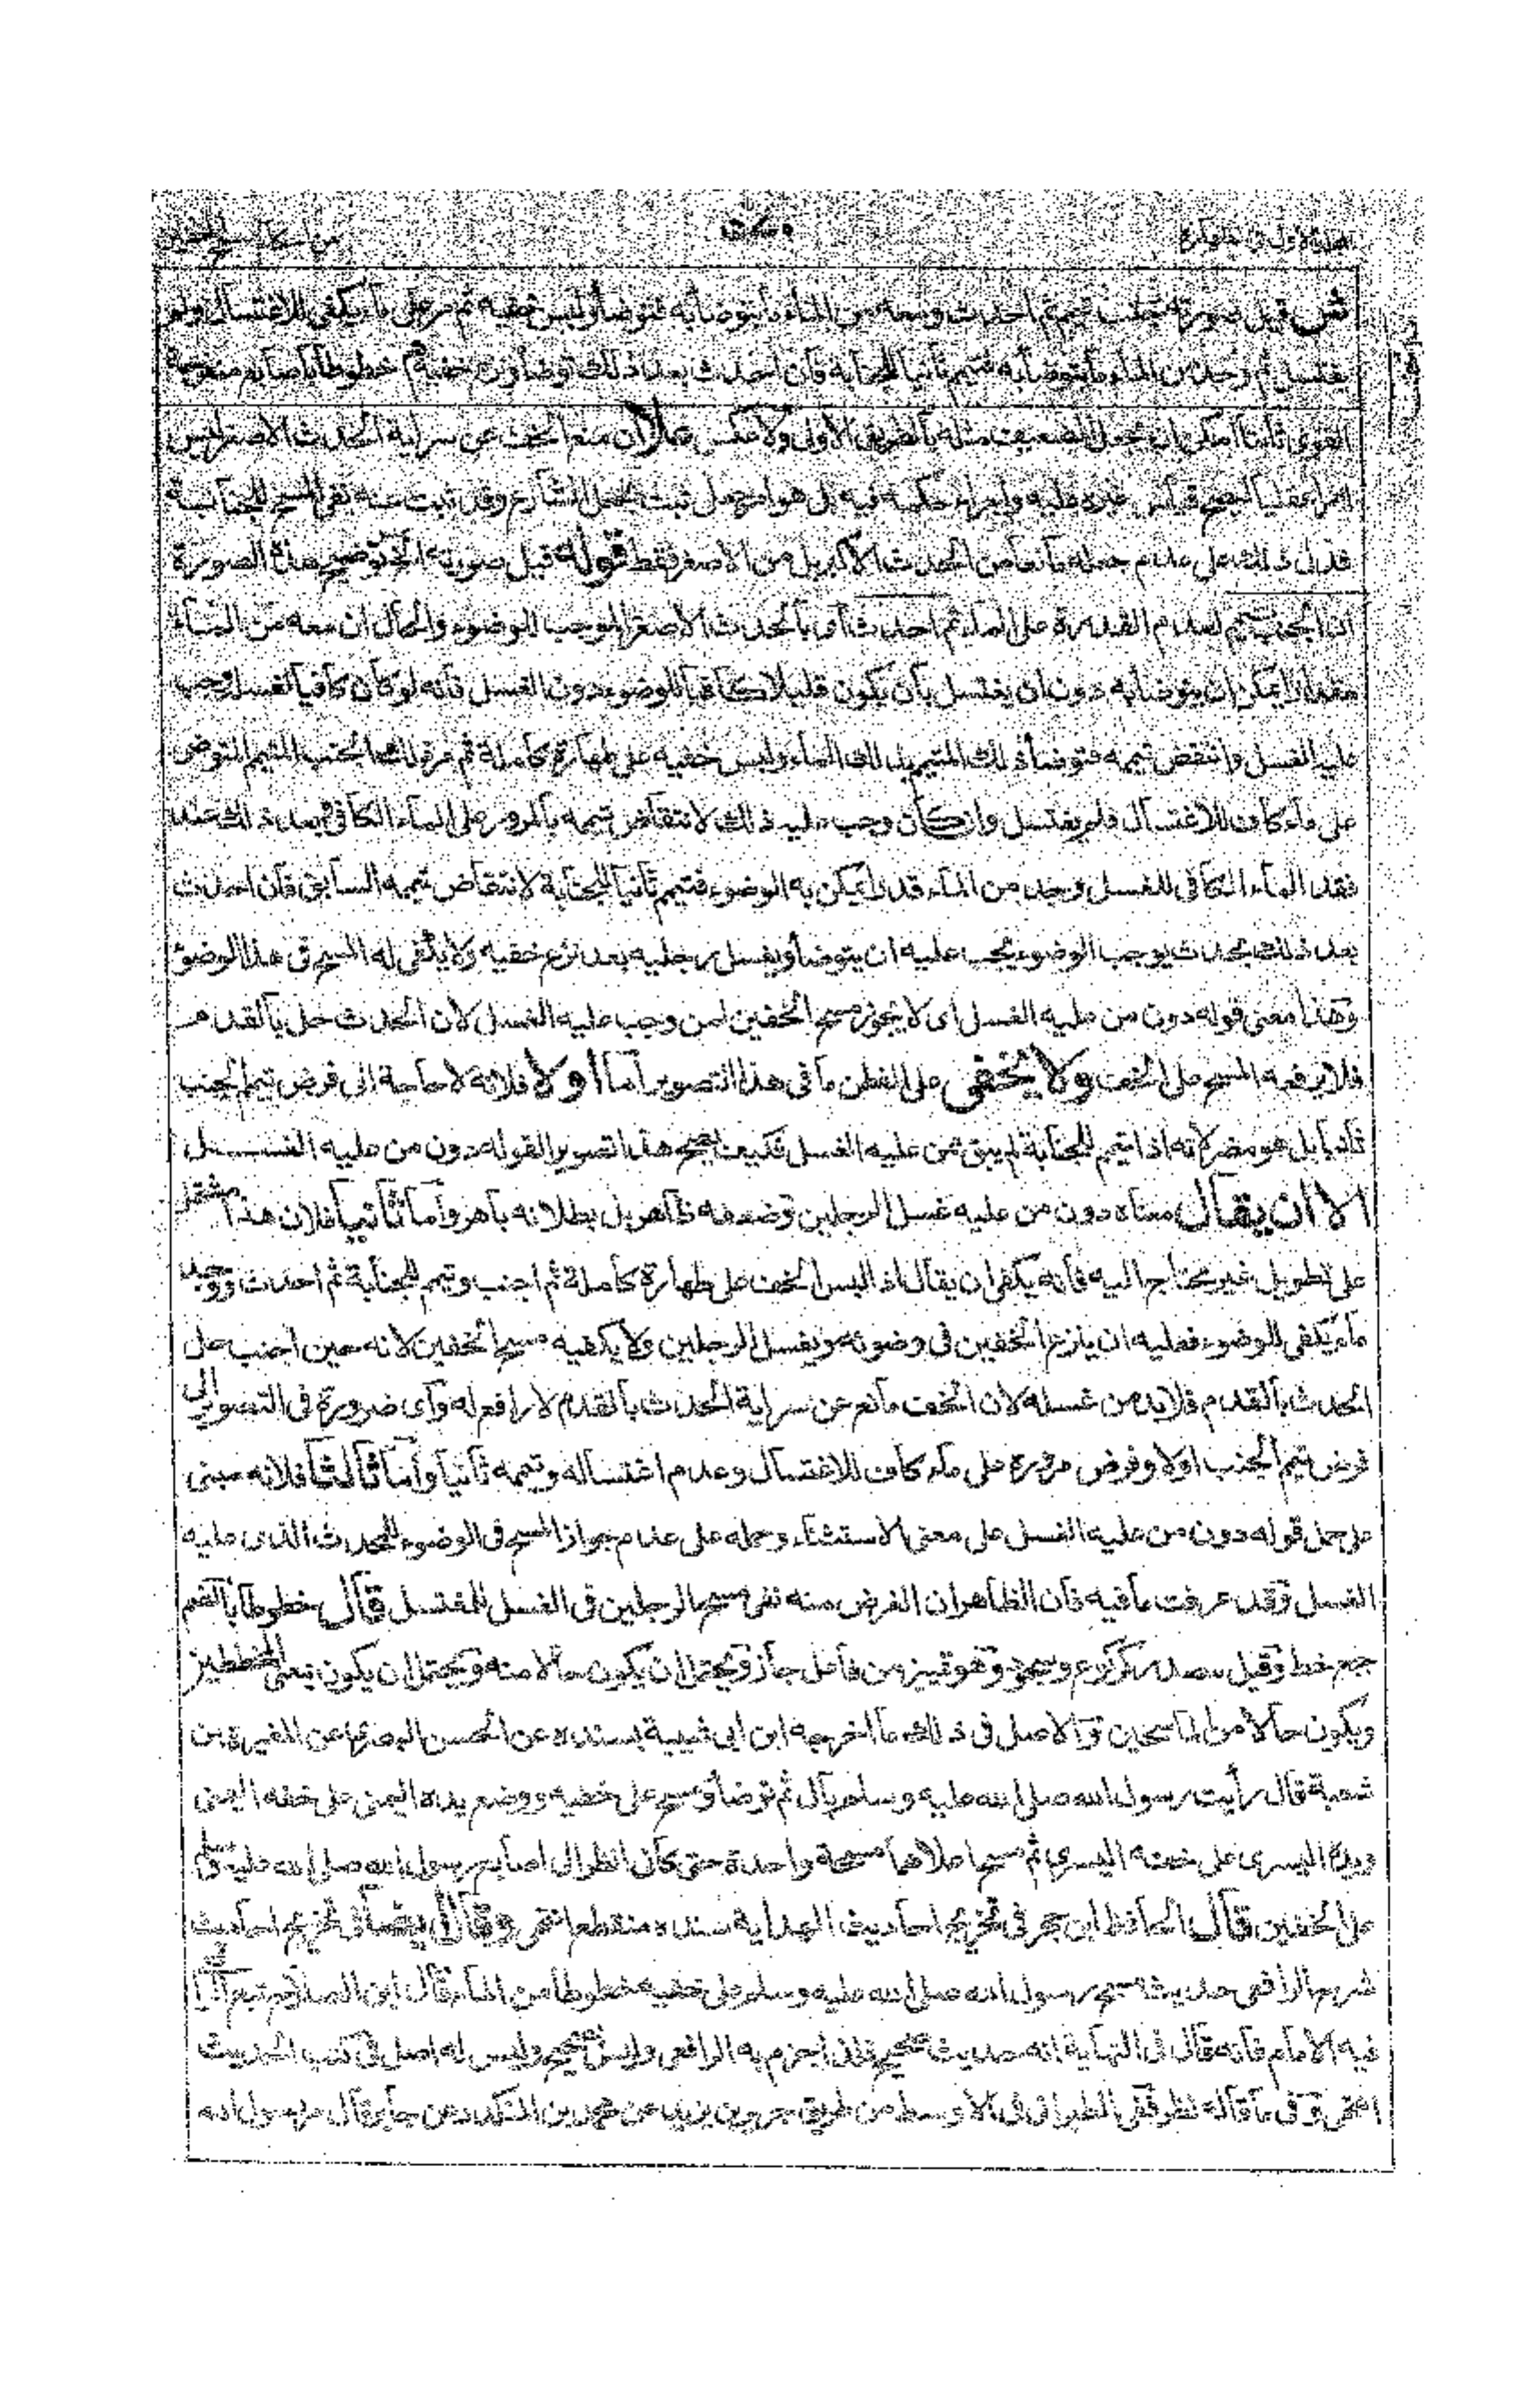 ش قيل صورته جنب تيمم ثم احدث ومعه من الماء ما يتوضأ به فتوضأ ولبس خفيه ثم مر على ماء يكفى للاغتسال ولم
يغتسل ثم وجد من الماء ما يتوضأ به فتيمم ثانيا للجنابة فان احدث بعد ذلك توضأ ونزع خفيه م خطوطا باصابع منفرجة
القوى ثابتا امكن ان يجعل الضعيف مثله بالطريق الاولى ولا عكس لان منع الخف عن سراية الحدث الاصغر ليس
امرا عقليا ليصح قياس غيره عليه واجراء حكمه فيه بل هو امر جعل ثبت بجعل الشارع وقد ثبت منه نفى المسح للجنابة
فدل ذلك على عدم جعله مانعا من الحدث الاكبر بل من الاصغر فقط قوله قيل صورته الخ توضيح هذه الصورة
ان الجنب تيمم لعدم القدرة على الماء ثم احدث اى بالحدث الاصغر الموجب للوضوء والحال ان معه من الماء
مقدارا يمكن ان يتوضأ به دون ان يغتسل بأن يكون قليلا كافيا للوضوء دون الغسل فانه لو كان كافيا لغسل وجب
عليه الغسل وانتقض تيممه فتوضأ ذلك المتيمم بذلك الماء ولبس خفيه على طهارة كاملة ثم مر ذلك الجنب المتيمم المتوضى
على ماء كاف للاغتسال فلم يغتسل وان كان وجب عليه ذلك لانتقاض تيممه بالمرور على الماء الكافى ثم بعد ذلك عند
فقد الماء الكافى للغسل وجد من الماء قدر ما يمكن به الوضوء فتيمم ثانيا للجنابة لانتقاض تيممه السابق فان احدث
بعد ذلك بحدث يوجب الوضوء يجب عليه ان يتوضأ ويغسل رجليه بعد نزع خفيه ولا يكفى له المسح فى هذا الوضوء
وهذا معنى قوله دون من عليه الغسل اى لا يجوز مسح الخفين لمن وجب عليه الغسل لان الحدث حل بالقدم
فلا يرفعه المسح على الخف ولا يخفى على الفطن ما فى هذا التصوير اما اولا فلانه لا حاجة الى فرض تيمم الجنب
ثانيا بل هو مضر لانه اذا تيمم للجنابة لم يبق ممن عليه الغسل فكيف يصح هذا تصويرا لقوله دون من عليه الغسل
الا ان يقال معناه دون من عليه غسل الرجلين وضعفه ظاهر بل بطلانه باهر واما ثانيا فلان هذا مشتمل
على تطويل غير محتاج اليه فانه يكفى ان يقال اذا لبس الخف على طهارة كاملة ثم اجنب وتيمم للجنابة ثم احدث ووجد
ماء يكفى للوضوء فعليه ان ينزع الخفين فى وضوئه ويغسل الرجلين ولا يكفيه مسح الخفين لانه حين اجنب حل
الحدث بالقدم فلا بد من غسله لان الخف مانع عن سراية الحدث بالقدم لا رافع له واى ضرورة فى التصوير الى
فرض تيمم الجنب اولا وفرض مروره على ماء كاف للاغتسال وعدم اغتساله وتيممه ثانيا واما ثالثا فلانه مبنى
على حمل قوله دون من عليه الغسل على معنى الاستثناء وحمله على عدم جواز المسح فى الوضوء للمحدث الذى عليه
الغسل وقد عرفت ما فيه فان الظاهر ان الغرض منه نفى مسح الرجلين فى الغسل للمغتسل قال خطوطا بالضم
جمع خط وقيل مصدر كركوع وسجود وهو تمييز من فاعل جاز ويحتمل ان يكون حالا منه ويحتمل ان يكون بمعنى المخططين
ويكون حالا من الماسحين والاصل فى ذلك ما اخرجه ابن ابى شيبة بسنده عن الحسن البصرى عن المغيرة بن
شعبة قال رأيت رسول الله صلى الله عليه وسلم بال ثم توضأ ومسح على خفيه ووضع يده اليمنى على خفه اليمنى
ويده اليسرى على خفه اليسرى ثم مسح اعلاهما مسحة واحدة حتى كأن انظر الى اصابع رسول الله صلى الله عليه
على الخفين قال الحافظ ابن حجر فى تخريج احاديث الهداية سنده منقطع انتهى وقال ايضا فى تخريج احاديث
شرح الرافعى حديث مسح رسول الله صلى الله عليه وسلم على خفيه خطوطا من الماء قال ابن الصلاح تبع
فيه الامام فانه قال فى النهاية انه حديث صحيح فلذا جزم به الرافعى وليس بصحيح وليس له اصل فى كتب الحديث
انتهى وفى ما قاله نظر ففى الطبرانى فى الاوسط من طريق جرير بن يزيد عن محمد بن المنكدر عن جابر قال مر رسول الله